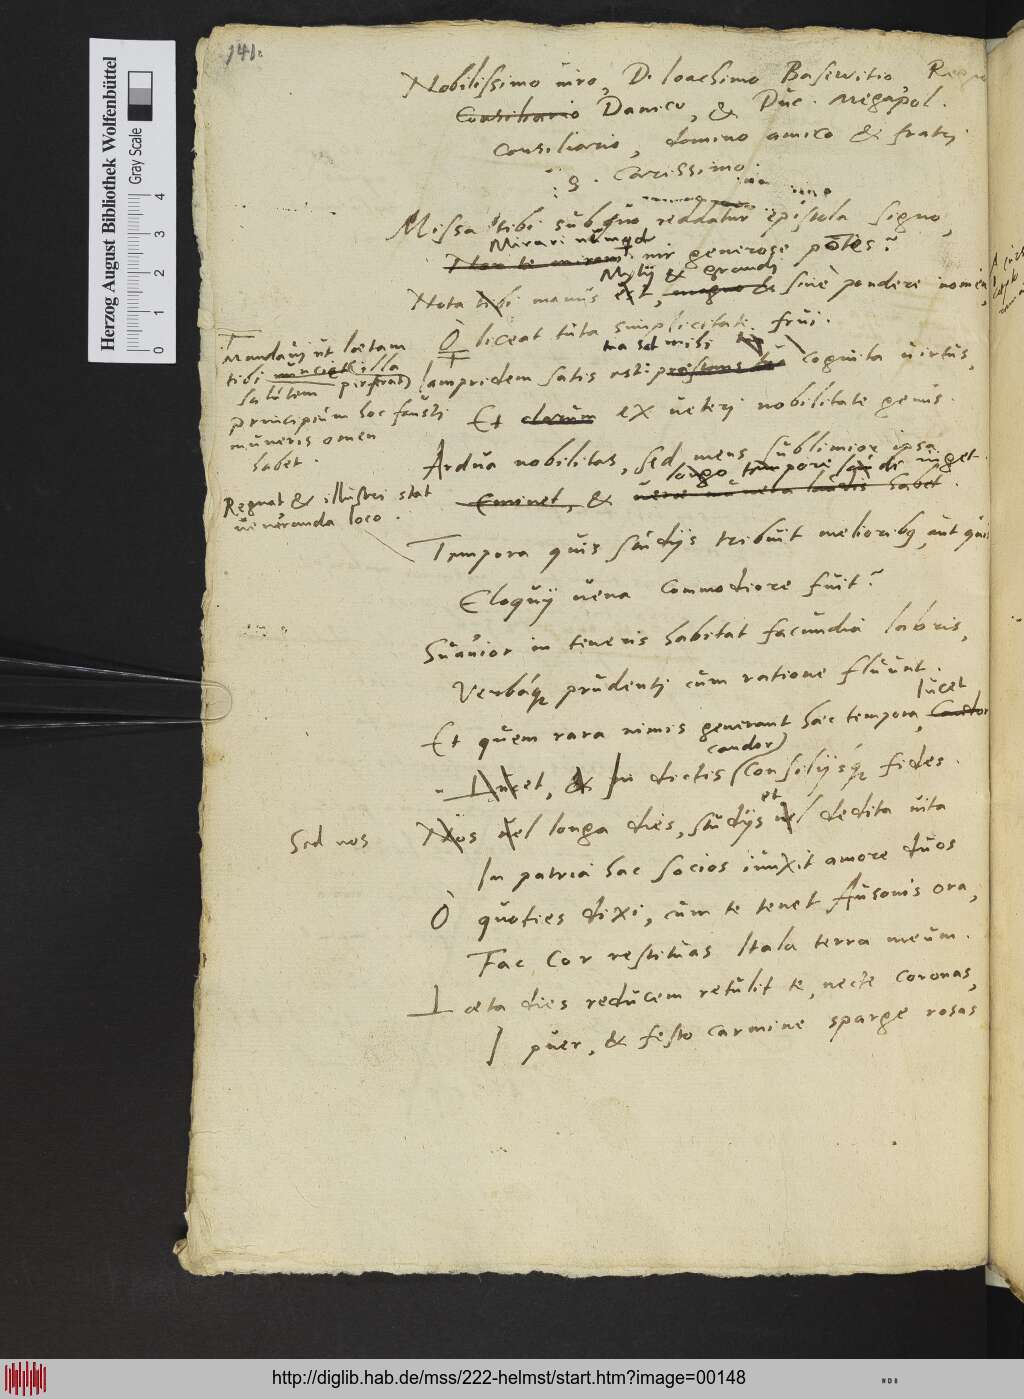 141.
Nobilissimo uiro, D. Ioachimo Baseuitio
Consiliario Danico, & Duc. Megapol.
consiliario, domino amico & fratri
carissimo.
:S:
Missa tibi subquo reddatur epistola signo,
Mirari nimque
uir generose potes?
Mylij & grandi
Nota tibi manus est, magno & sine pondere nomen,
O liceat tuta simplicitate frui.
Mandauit ut laetam
tibi nunciet illa
salutem perferat
principium hoc fausti
muneris omen
habet.
tua sed mihi
Iampridem satis est: cognita uirtus,
Et clarum ex ueteri nobilitate genus.
Ardua nobilitas, sed mens sublimior ipsa
longo tempore laudi uiget.
Eminet, & habet.
Regnat & illustri stat
ueneranda loco.
Tempora quis studijs tribuit melioribus, aut quis
Eloquij uena commodiore fuit?
Suauior in teneris habitat facundia labris,
Verbaque prudenti cum ratione fluunt.
lucet
Et quem rara nimis generant haec tempora, Candor
candor
Lucet, & In dictis Consilijsque fides.
et
Sed nos
Nos uel longa dies, studijs uel dedita uita
In patria hac socios iunxit amore duos
O quoties dixi, cum te tenet Ausonis ora,
Fac Cor restituas Itala terra meum.
Laeta dies reducem retulit te, necte coronas,
I puer, & festo carmine sparge rosas
Herzog August Bibliothek Wolfenbüttel
Gray Scale
0 1 2 3 4
http://diglib.hab.de/mss/222-helmst/start.htm?image=00148